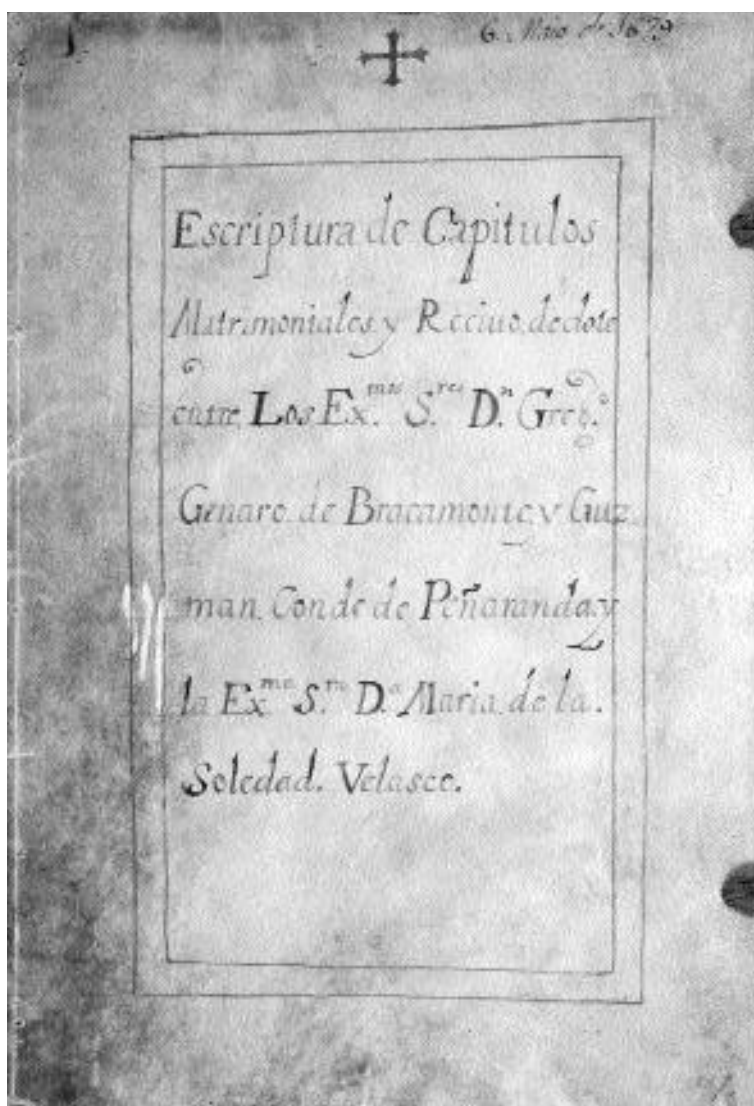 6. Maio de 1679
Escriptura de Capitulos
Matrimoniales y Reciuo de dote
entre Los Ex.mos S.res D.n Greg.o
Genaro de Bracamonte y Guz
man Conde de Peñaranda y
la Ex.ma S.ra D.a Maria de la
Soledad. Velasco.